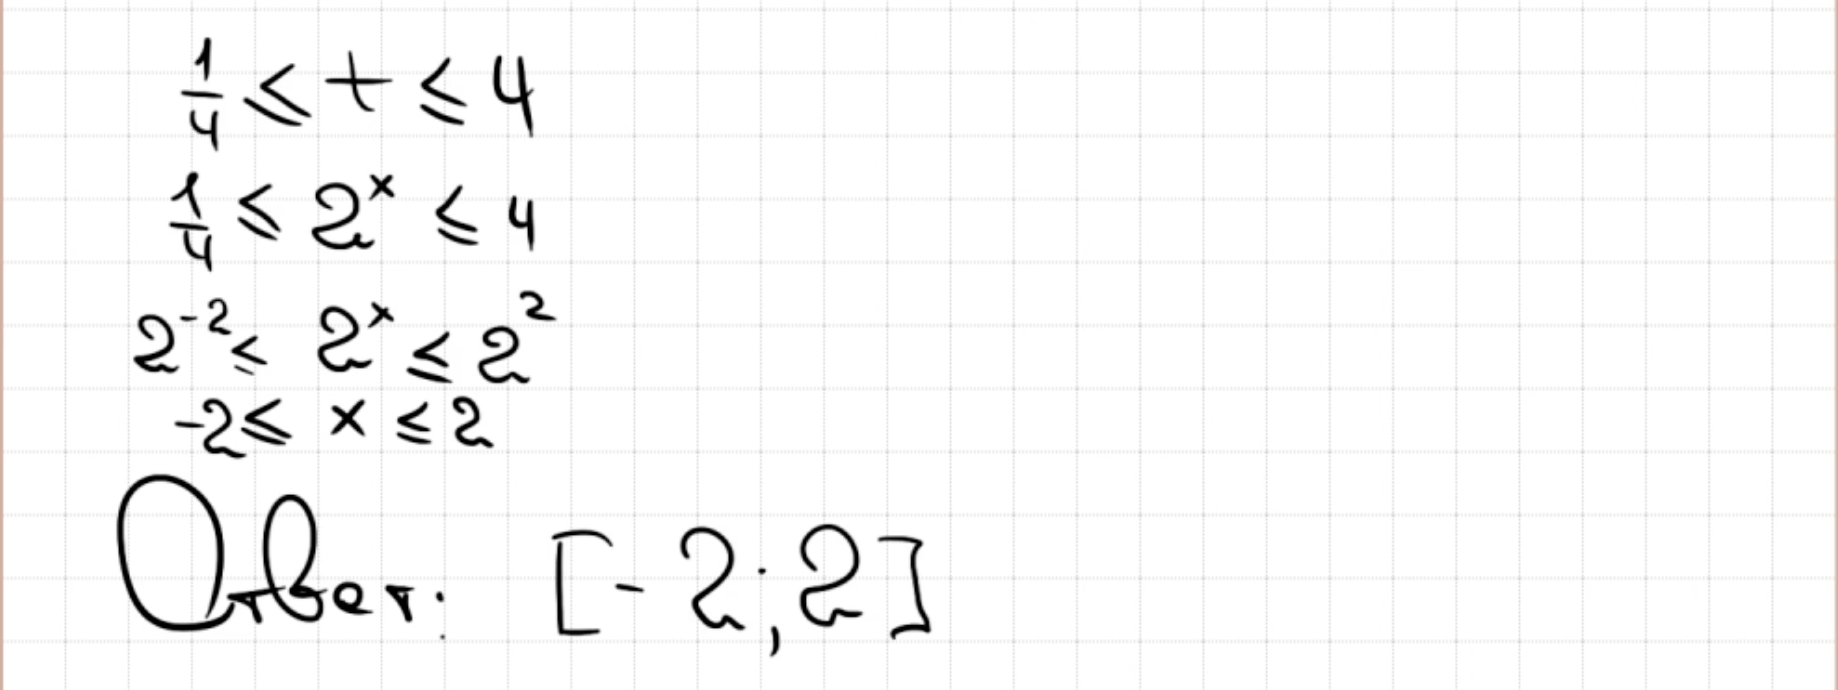 1/4 ⩽ t ⩽ 4
1/4 ⩽ 2^x ⩽ 4
2^-2 ⩽ 2^x ⩽ 2^2
-2 ⩽ x ⩽ 2
Ответ: [-2;2]